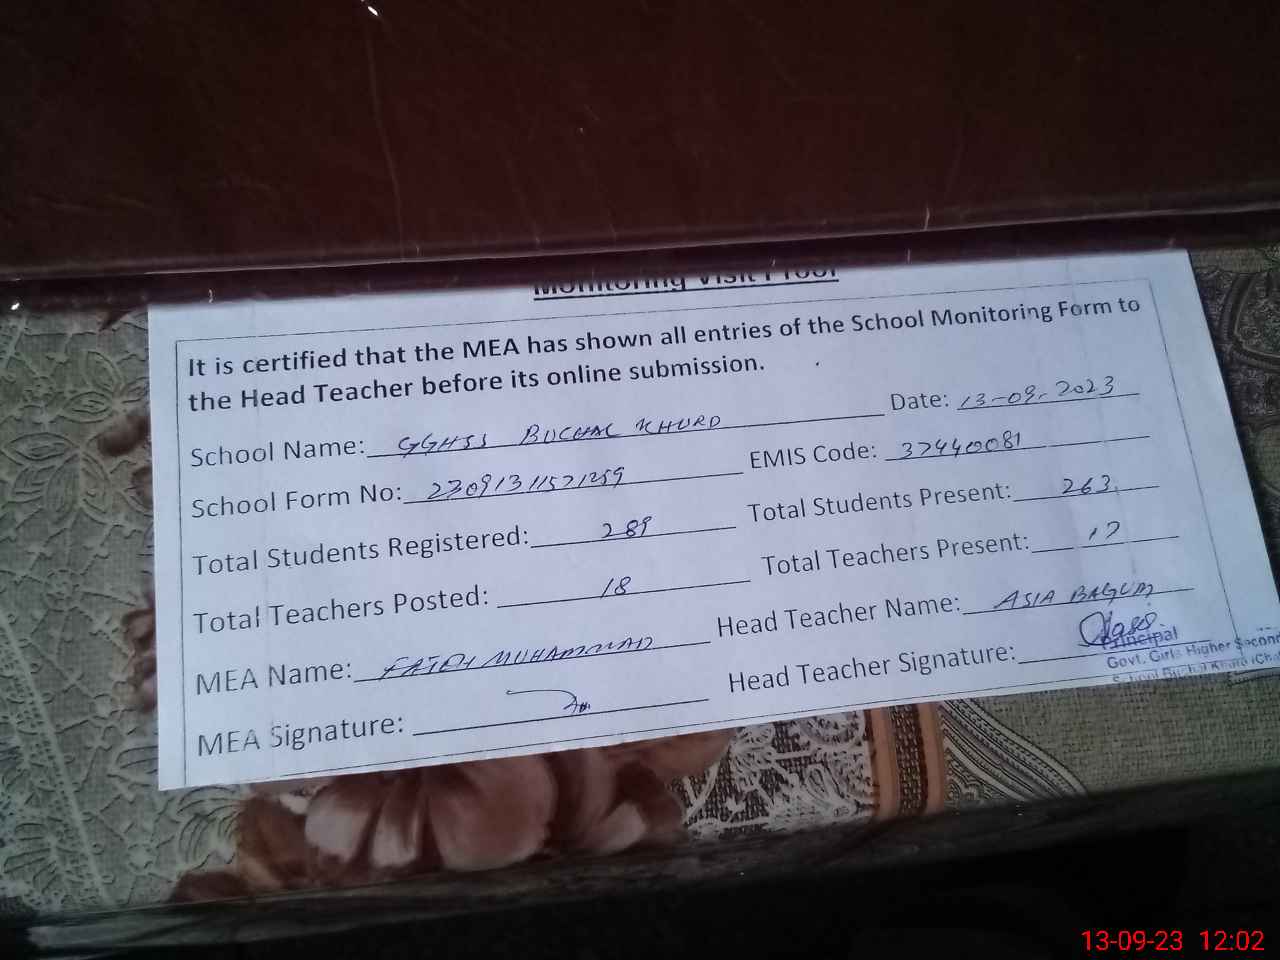 Monitoring Visit Proof
It is certified that the MEA has shown all entries of the School Monitoring Form to
the Head Teacher before its online submission.
School Name: GGHSS BUCHAL KHURD Date: 13-09-2023
School Form No: 230913115721259 EMIS Code: 37440081
Total Students Registered: 289 Total Students Present: 263
Total Teachers Posted: 18 Total Teachers Present: 17
MEA Name: MUHAMMAD Head Teacher Name: ASIA BAGUM
MEA Signature: Head Teacher Signature:
Principal
Govt. Girls Higher Secon
School Buchal Khurd (Cha
13-09-23 12:02